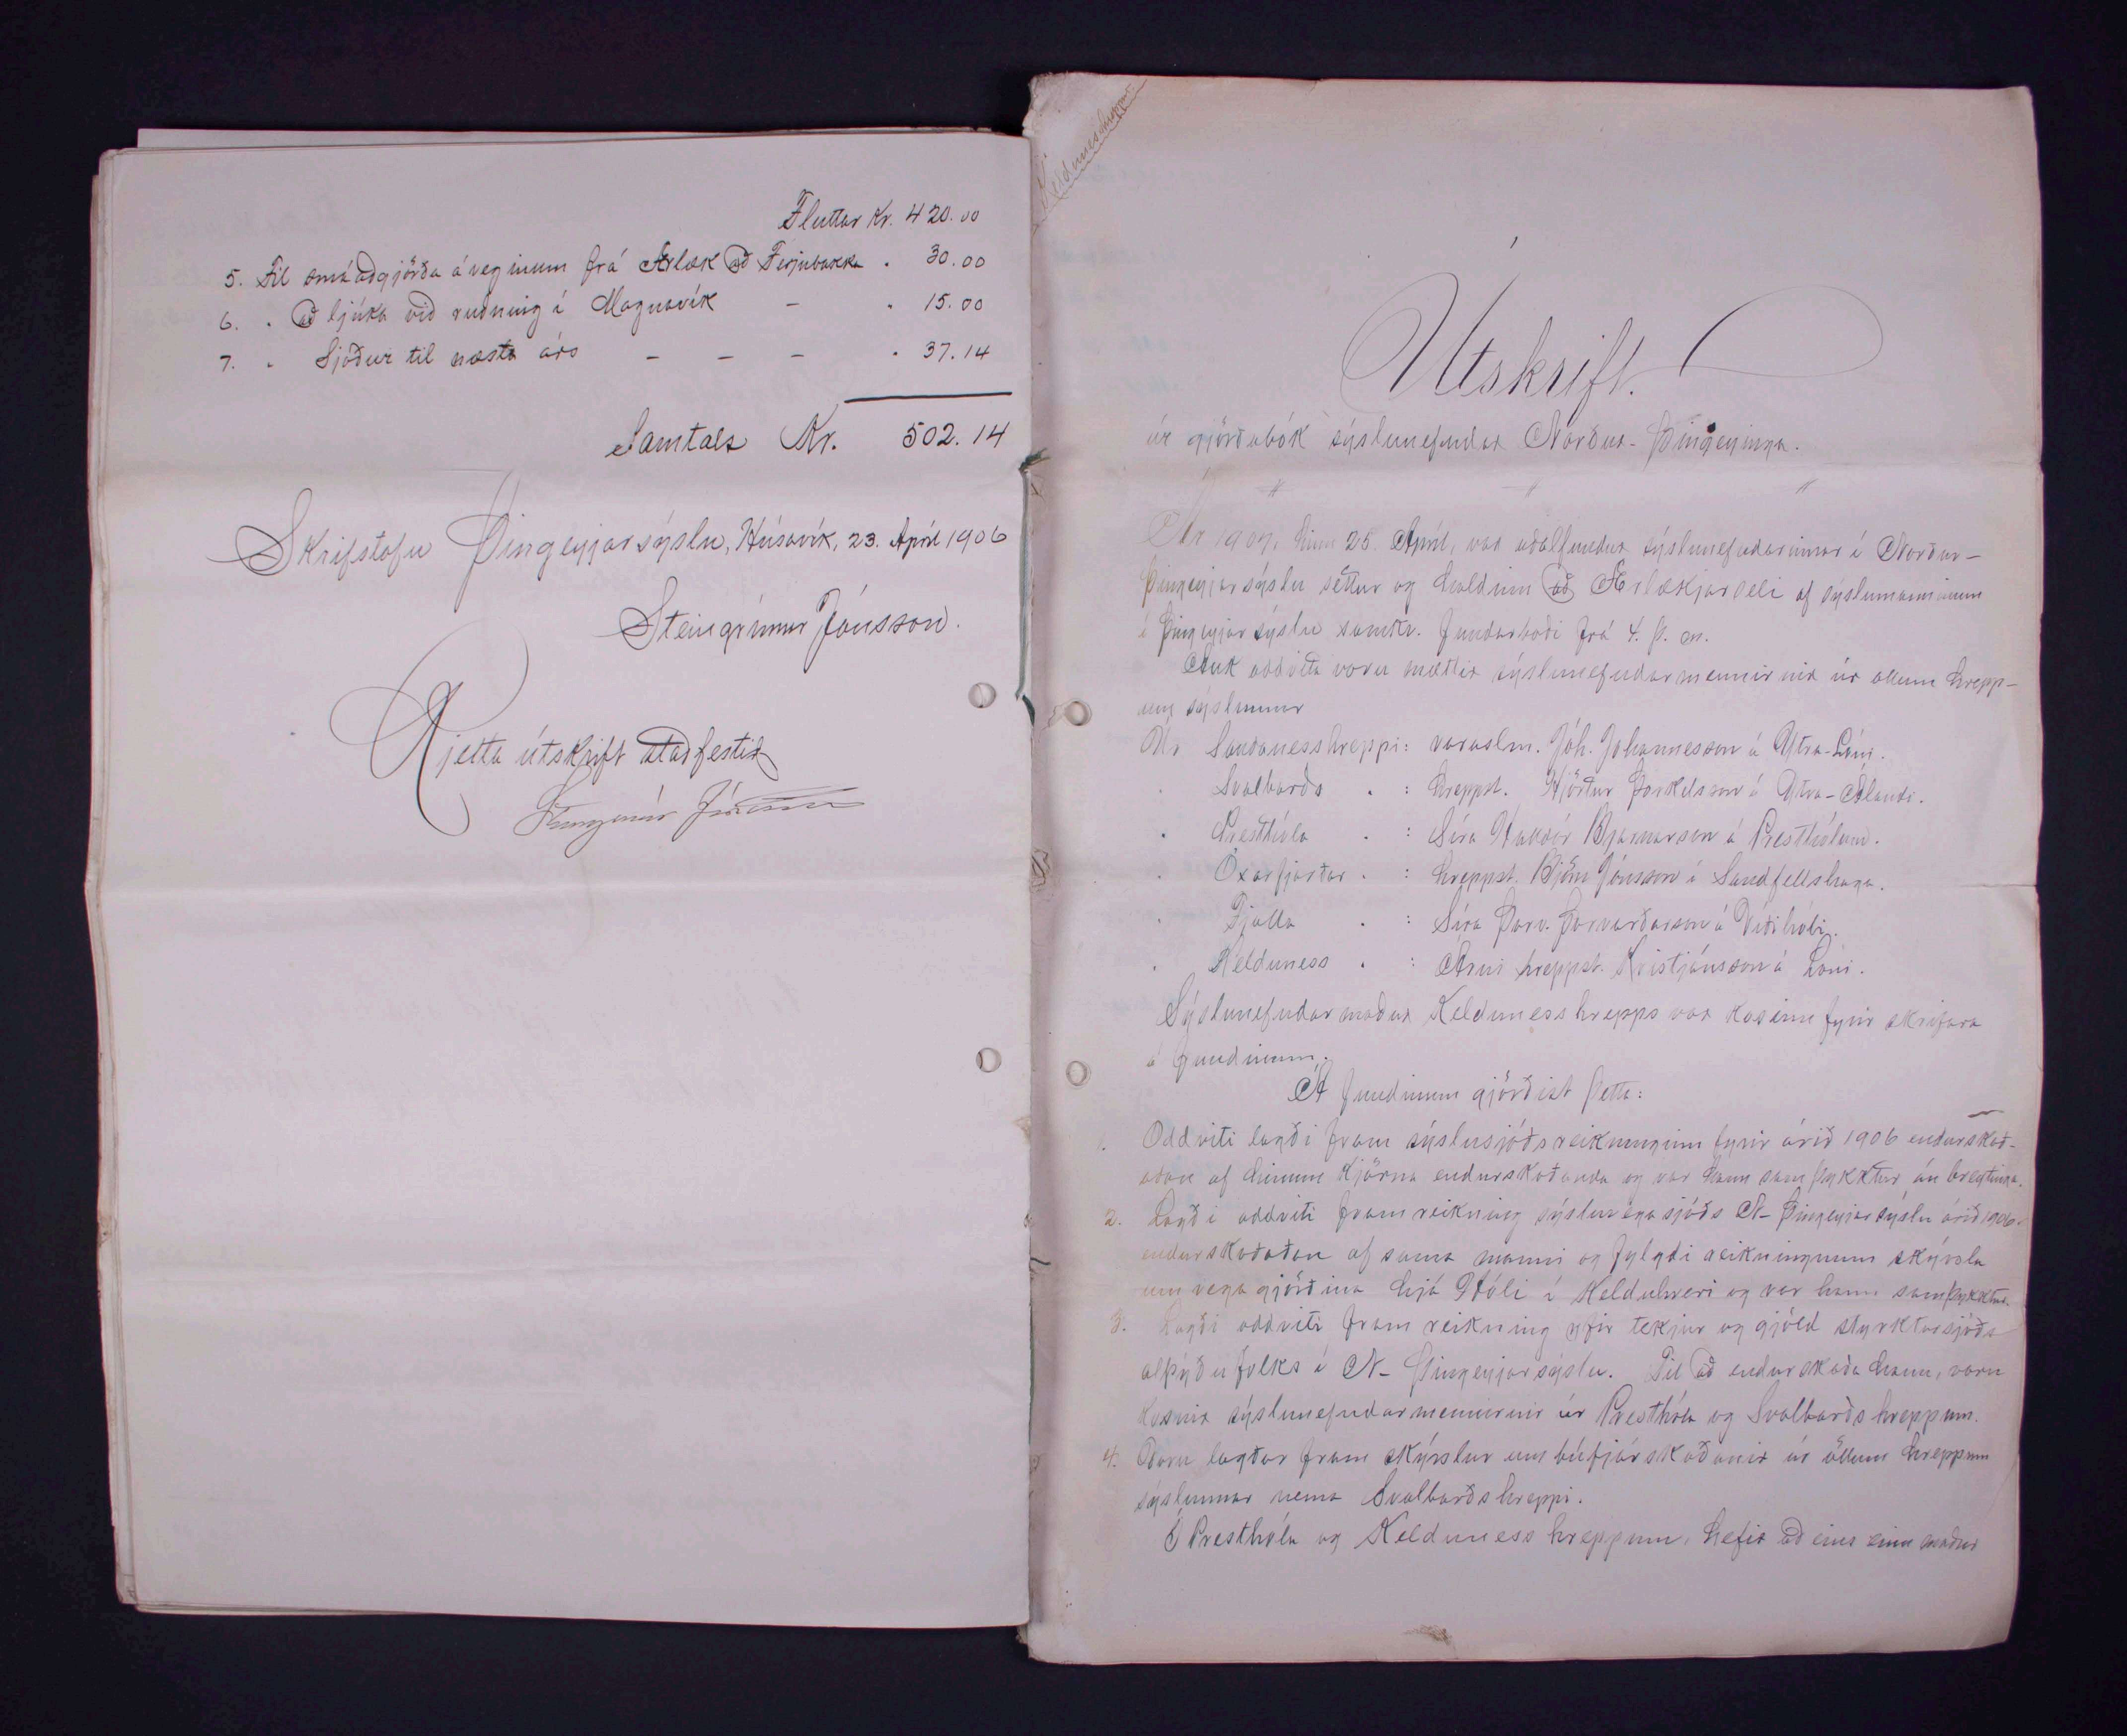 Fluttar Kr. 420.00
5. Til smáaðgjörða á veginum frá Ærlæk að Ferjubakka . 30.00
6. . að ljúka við ruðning í Magnavík - . 15.00
7. . Sjóður til næsta árs - - - . 37.14
Samtals Kr. 502.14
Skrifstofu Þingeyjarsýslu, Húsavík, 23. Apríl 1906
Steingrímur Jónsson.
Rjetta útskrift staðfestir
Steingrímur Jónsson
Kelduneshreppur.
Útskrift.
úr gjörðabók sýslunefndar Norður-Þingeyinga.
Ár 1907, hinn 25. Apríl, var aðalfundur sýslunefndarinnar í Norður-
Þingeyjarsýslu settur og haldinn að Ærlækjarseli af sýslumanninum
í Þingeyjarsýslu samkv. fundarboði frá 4. þ. m.
Auk oddvita voru mættir sýslunefndarmennirnir úr öllum hrepp-
um sýslunnar
Úr Sauðanesshreppi: varaslm. Jóh. Jóhannesson á Ytra-Lóni.
. Svalbarðs . : hreppst. Hjörtur Þorkelsson á Ytra-Álandi.
. Presthóla . : Síra Halldór Bjarnarson á Presthólum.
. Öxarfjarðar . : hreppst. Björn Jónsson í Sandfellshaga.
. Fjalla . : Síra Þorv. Þorvarðarson á Víðihóli.
. Kelduness . : Árni hreppst. Kristjánsson á Lóni.
Sýslunefndarmaður Keldunesshrepps var kosinn fyrir skrifara
á fundinum.
Á fundinum gjörðist þetta:
1. Oddviti lagði fram sýslusjóðsreikninginn fyrir árið 1906 endurskoð-
aðan af hinum kjörna endurskoðanda og var hann samþykktur án breytinga.
2. Lagði oddviti fram reikning sýsluvegasjóðs N-Þingeyjarsýslu árið 1906
endurskoðaðan af sama manni og fylgdi reikningnum skýrsla
um vegagjörðina hjá Hóli í Kelduhverfi og var hann samþykktur.
3. Lagði oddviti fram reikning yfir tekjur og gjöld styrktarsjóðs
alþýðufolks í N-Þingeyjarsýslu. Til að endurskoða hann, voru
kosnir sýslunefndarmennirnir úr Presthóla og Svalbarðshreppum.
4. Voru lagðar fram skýrslur um búfjárskoðanir úr öllum hreppum
sýslunnar nema Svalbarðshreppi.
Í Presthóla og Keldunesshreppum, hefir að eins einn maður